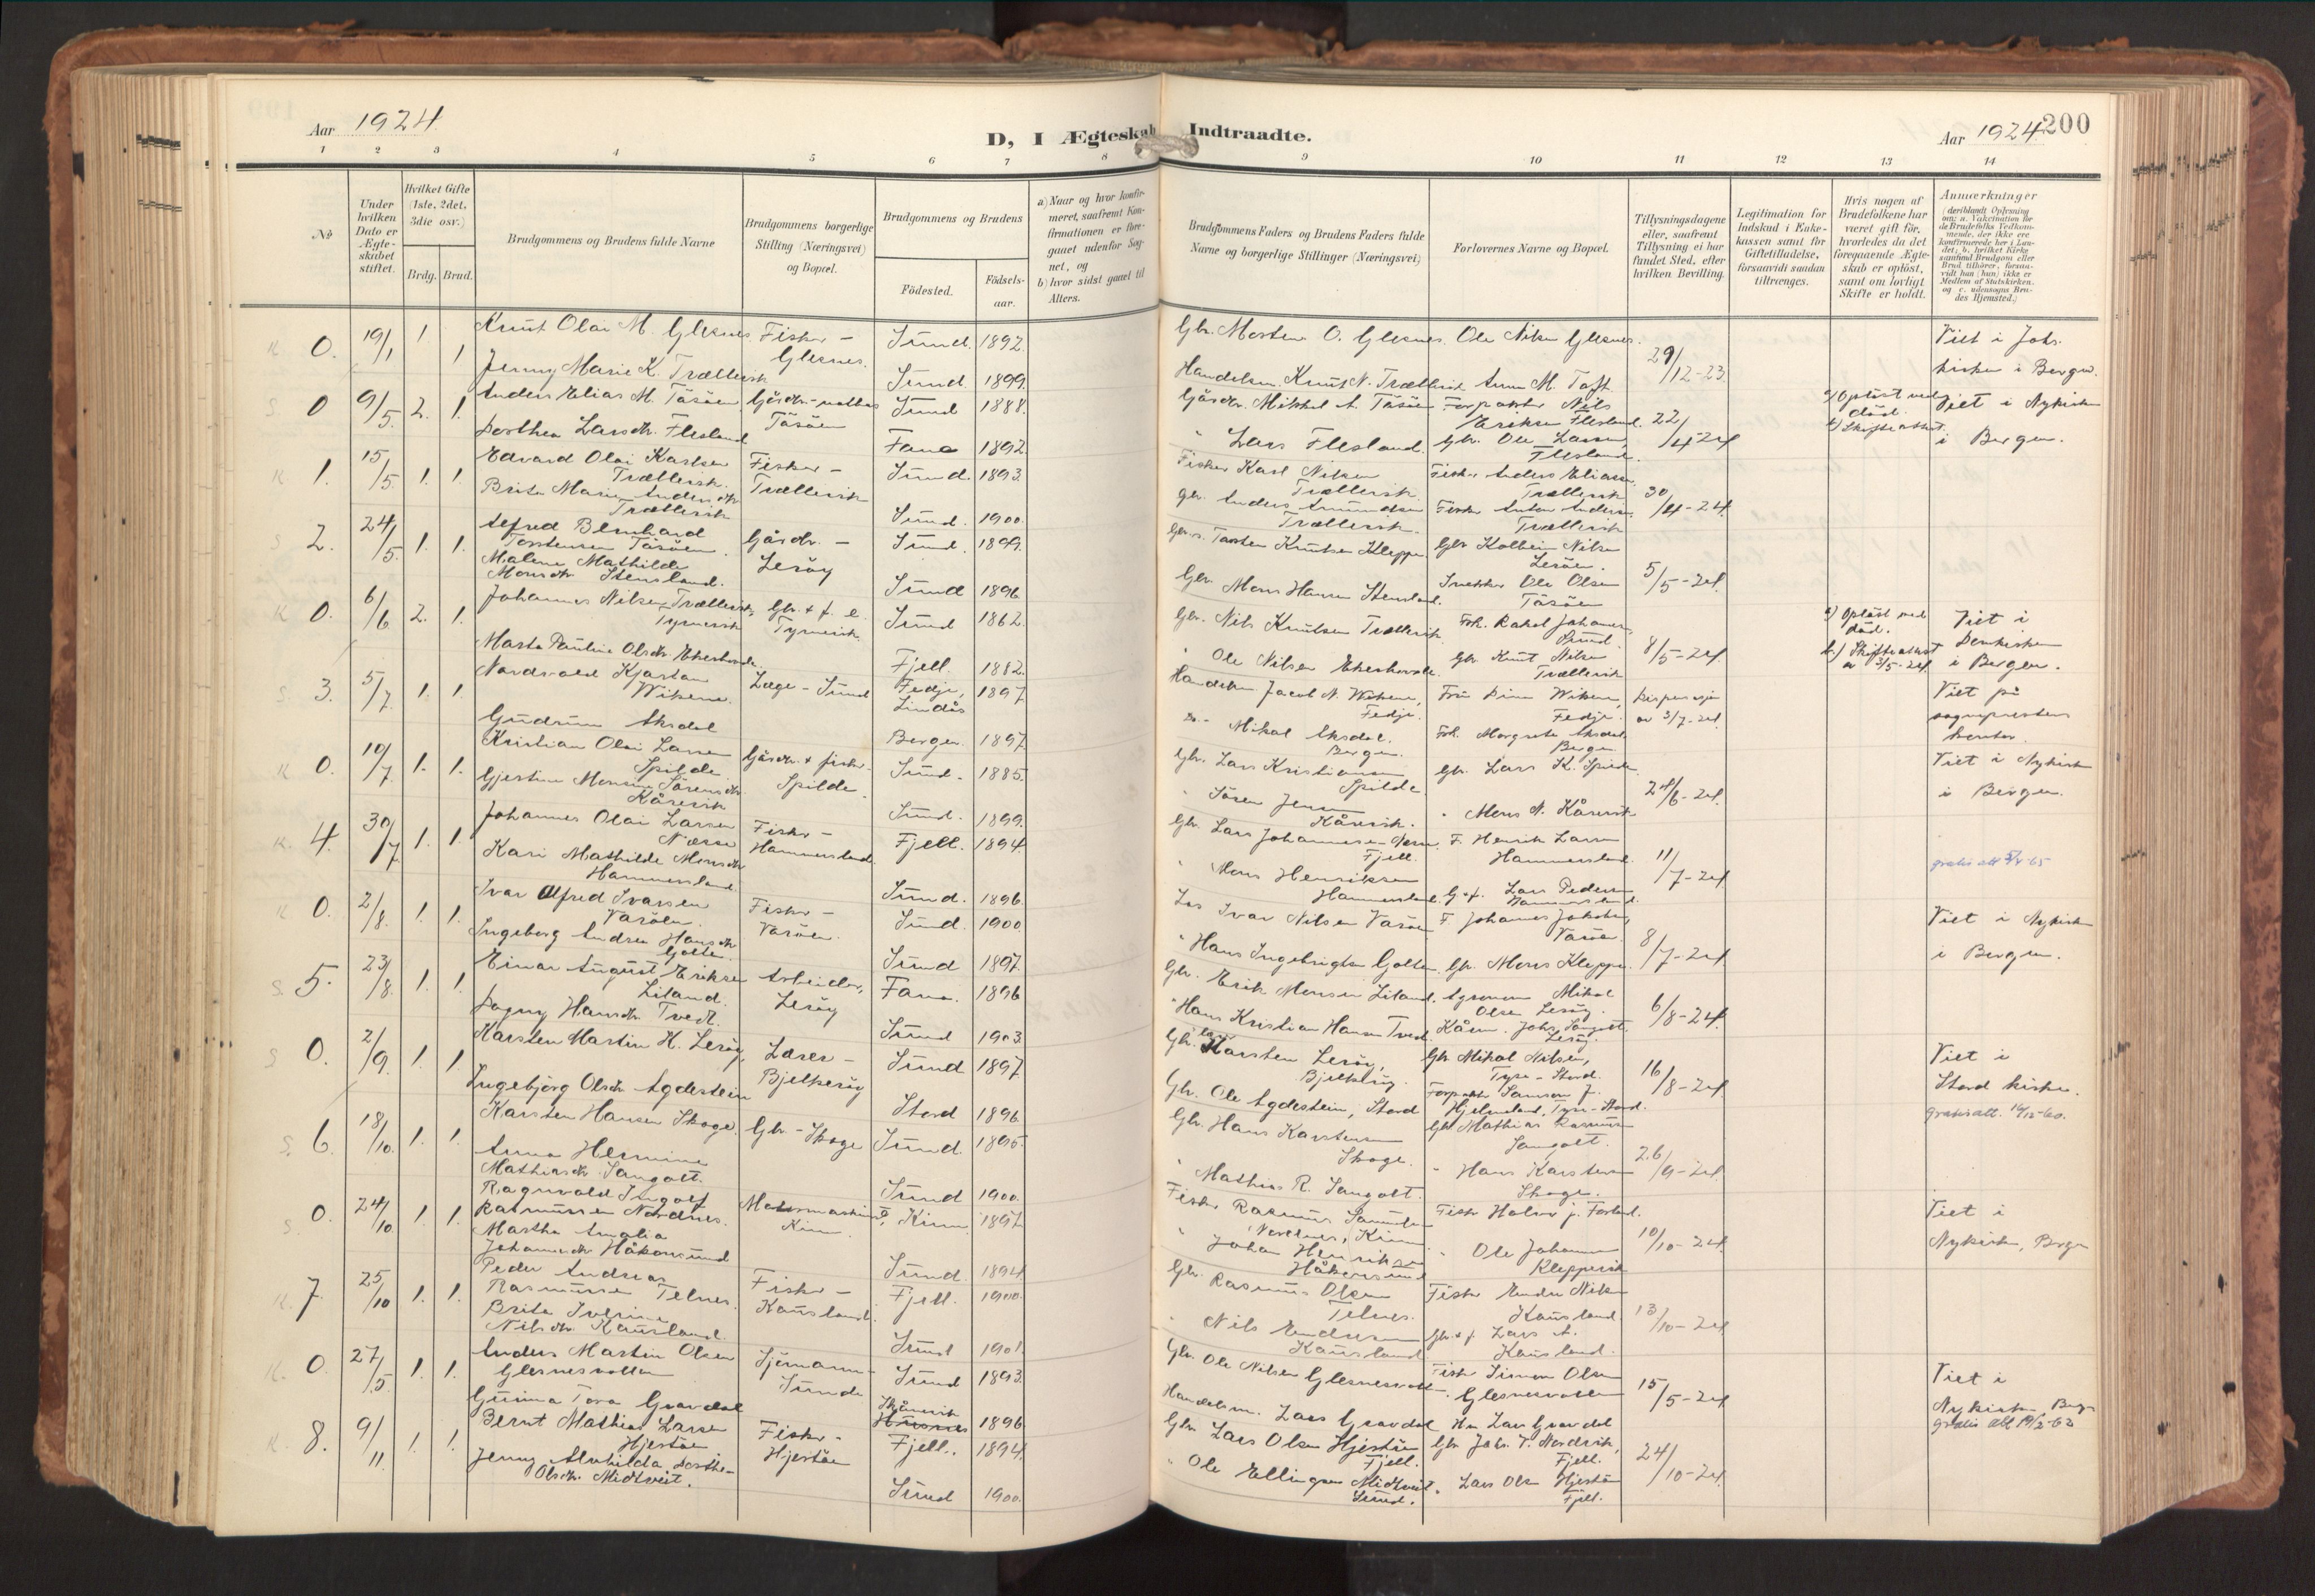 Aar 1924.
D, I Ægteskab Indtraadte.
Aar 1924. 200
1 2 3 4 5 6 7 8 9 10 11 12 13 14
No
Under hvilken Dato er Ægteskabet stiftet.
Hvilket Gifte (1ste, 2det, 3die osv.)
Brdg. Brud.
Brudgommens og Brudens fulde Navne
Brudgommens borgerlige Stilling (Næringsvei) og Bopæl.
Brudgommens og Brudens
Födested.
Födselsaar.
a) Naar og hvor konfirmeret, saafremt Konfirmationen er foregaaet udenfor Sognet, og
b) hvor sidst gaaet til Alters.
Brudgommens Faders og Brudens Faders fulde Navne og borgerlige Stillinger (Næringsvei)
Forlovernes Navne og Bopæl.
Tillysningsdagene eller, saafremt Tillysning ei har fundet Sted, efter hvilken Bevilling.
Legitimation for Indskud i Enkekassen samt for Giftetilladelse, forsaavidt saadan tiltrænges.
Hvis nogen af Brudefolkene har været gift för, hvorledes da det foregaaende Ægteskab er oplöst, samt om lovligt Skifte er holdt.
Anmærkninger
(deriblandt Oplysning om: a. Vakcination for de Brudefolks Vedkommende, der ikke ere konfirmerede her i Landet; b. hvilket Kirkesamfund Brudgom eller Brud tilhörer, forsaavidt han (hun) ikke er Medlem af Statskirken, og c. udensogns Brudes Hjemsted.)
K 0. 19/1 1. Knut Olai M. Glesnes Fisker - Glesnes. Sund. 1892. Gbr. Morten O. Glesnes. Ole Nilsen Glesnes. 29/12-23. Viet i Johs.
1 Jenny Marie K. Trællevik Sund. 1899. Handelsm. Knut N. Trællevik Anna M. Toft kirken i Bergen.
S 0 9/5. 2. 1. Anders Elias M. Täsöen Gårdbr. Täsöen Sund 1888. Gårdbr. Mikkel A. Täsöen Forpakter Nils Eriksen Flesland. 22/4-24 a) Oplöst ved död. Viet i Nykirken
Dorthea Larsdtr. Flesland Fana 1892 " Lars Flesland. Gbr. Ole Larsen, Flesland. b) Skifteattest. i Bergen.
K 1. 15/5. 1. 1. Edvard Olai Karlsen Trællevik. Fisker - Trællevik Sund. 1893. Fisker Karl Nilsen Trællevik. Fisker Anders Eliassen, Trællevik 30/4-24.
Brita Marie Andersdtr. Trællevik Sund. 1900. Gbr. Anders Amundsen Trællevik. Fisker Anton Andersen, Trællevik
S 2. 24/5. 1. 1. Alfred Bernhard Torstensen Täsöen. Gårdbr. - Leröy Sund. 1899. Gbr. Torsten Knutsen Kleppe Gbr Kolbein Nilsen Leröen. 5/5-24.
Malene Mathilde Monsdtr. Stensland. Sund 1896 Gbr. Mons Hansen Stensland. Snekker Ole Olsen Täsöen
K 0. 6/6 2. 1. Johannes Nilsen Trællevik, Tyrnevik Gbr. & f. e. Tyrnevik. Sund 1862. Gbr. Nils Knutsen Trællevik Frk. Rakel Johannes. Sund. 8/5-24. a) Oplöst med död. Viet i
Marta Pauline Olsdtr. Ekerhovde. Fjell. 1882. " Ole Nilsen Ekerhovde. Gbr. Knut Nilsen Trællevik b.) Skifteattest av 3/5-24. Domkirken i Bergen.
S 3. 5/7 1. 1. Nordvald Kjartan Wikene. Læge - Sund Fedje, Lindås 1897 Handelsm. Jacob N. Wikene, Fedje. Fru Dina Wikene, Fedje. Dispensasjon av 3/7-24. Viet på
Gudrun Aksdal Bergen. 1897. do- Mikal Aksdal. Bergen. Frk. Margrete Aksdal Bergen sogneprestens kontor
K 0. 10/7 1. 1. Kristian Olai Larsen Spilde Gårdbr. & fisker. Spilde. Sund. 1885. Gbr. Lars Kristiansen Spilde Gbr. Lars K. Spilde 24/6-24. Viet i Nykirken
Gjertine Monsine Sörensdtr. Kårevik Sund. 1899. " Sören Jensen Kårevik. " Mons N. Kårevik i Bergen.
K. 4. 30/7 1. 1. Johannes Olai Larsen Nesse Fisker - Hammersland. Fjell. 1894. Gbr. Lars Johannesen Nesse, Fjell. F. Henrik Larsen Hammersland 11/7-24. gratis att
Kari Mathilde Monsdtr. Hammersland Sund. 1896. " Mons Henriksen Hammersland. G. & f. Lars Pedersen Hammersland.
K 0. 2/8. 1. 1. Ivar Alfred Ivarsen Varöen. Fisker - Varöen. Sund. 1900 Los Ivar Nilsen Varöen F. Johannes Jakobsen, Varöen. 8/7-24. Viet i Nykirken
Ingeborg Andrea Hansdtr. Golten. Sund 1897. " Hans Ingebrigtsen Golten. Gbr. Mons Kleppe. i Bergen.
S. 5. 23/8. 1. 1. Einar August Eriksen Liland. Arbeider, Leröy Fana. 1896 Gbr. Erik Monsen Liland. Agronom Mikal Olsen Leröy. 6/8-24.
Dagny Hansdtr. Tvedt. Sund 1903 " Hans Kristian Hansen Tvedt. Johs. Sangolt. Leröy.
S 0. 2/9. 1. 1. Karsten Martin H. Leröy, Lærer - Bjelkeröy Sund 1897. Gbr. Karsten Leröy, Bjelkeröy. Gbr Mikal Nilsen, Tyse - Stord. 16/8-24. Viet i
Ingebjörg Olsdtr. Agdestein Stord 1896. Gbr. Ole Agdestein, Stord Forpakter Samson J. Hjelmeland, Tyse - Stord. Stord kirke.
S. 6. 18/10. 1. 1. Karsten Hansen Skoge. Gbr. - Skoge Sund. 1895. Gbr. Hans Karstensen Skoge. Gbr Mathias Rasmussen Sangolt. 26/9-24. gratis att. 16/12-60.
Anna Hermine Mathiasdtr. Sangolt. Sund 1900. " Mathias R. Sangolt. " Hans Karstensen Skoge.
S 0. 24/10. 1. 1. Ragnvald Ingolf Rasmussen Nordnes. Kinn. Kinn 1897 Fisker Rasmus Samuelsen Nordnes, Kinn Fisker Halvor J. Forland. 10/10-24. Viet i
Martha Amalia Johannesdtr. Håkonsund Sund. 1894. " Johan Henriksen Håkonsund " Ole Johannessen Kleppevik Nykirken, Bergen
K. 7. 25/10 1. 1. Peder Andreas Rasmussen Telnes. Fisker - Kausland. Fjell. 1900. Gbr. Rasmus Olsen Telnes. Fisker Endre Nilsen Kausland 13/10-24
Brita Iverine Nilsdtr. Kausland. Sund 1901. " Nils Endresen Kausland Gbr. & f. Lars A. Kausland.
K. 0. 27/5. 1. 1. Anders Martin Olsen Glesnesvollen Sjömann - Sunde Sund 1893. Gbr. Ole Nilsen Glesnesvollen. Fisker Simon Olsen Glesnesvollen 15/5-24 Viet i
Gunna Tora Gravdal Skånevik Husnes 1896. Handelsm. Lars Gravdal Lars Gravdal Nykirken, Bergen
K. 8. 9/11. 1. 1. Bernt Mathias Larsen Hjertöen Fisker - Hjertöen Fjell. 1894. Gbr. Lars Olsen Hjertöen Fjell. Gbr Johs. T. Nordvik, Fjell. 24/10-24. gratis att 19/2-63
Jenny Alvhilda Dorthe- Olsdtr. Midtveit. Sund 1900. " Ole Ellingsen Midtveit, Sund. Lars Olsen Hjertöen Fjell.